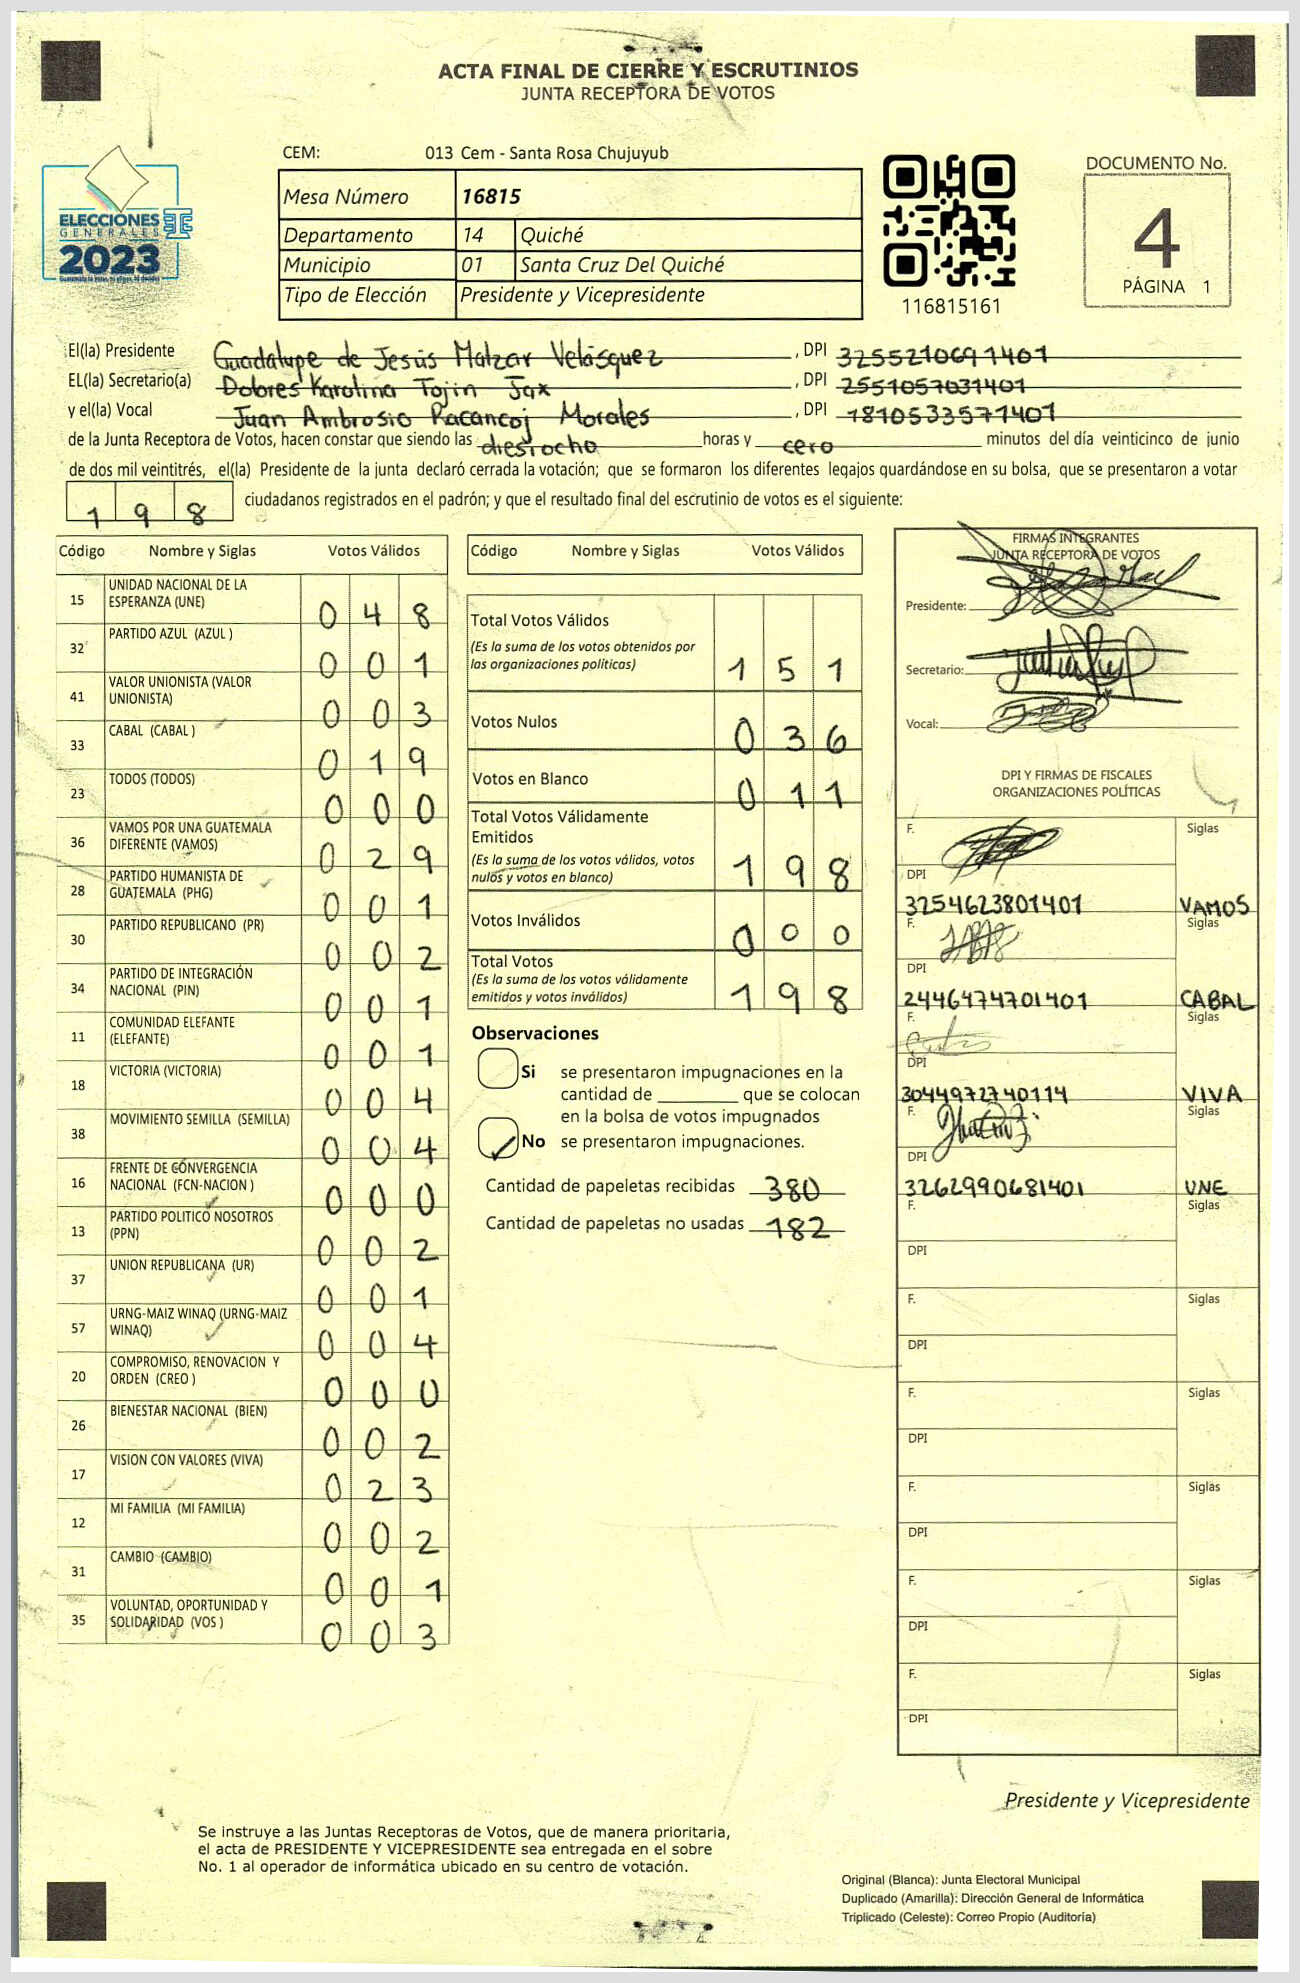 ACTA FINAL DE CIERRE Y ESCRUTINIOS
JUNTA RECEPTORA DE VOTOS
CEM: 013 Cem - Santa Rosa Chujuyub
ELECCIONES
GENERALES
2023
Mesa Número 16815
Departamento 14 Quiché
Municipio 01 Santa Cruz Del Quiché
Tipo de Elección Presidente y Vicepresidente
116815161
DOCUMENTO No.
4
PÁGINA 1
El(la) Presidente Guadalupe de Jesús Malzar Velásquez, DPI 3255210691401
EL(la) Secretario(a) Dolores Karolina Tojin Jax, DPI 2551057031401
y el(la) Vocal Juan Ambrosio Racancoj Morales, DPI 1810533571401
de la Junta Receptora de Votos, hacen constar que siendo las diesiocho horas y cero minutos del día veinticinco de junio
de dos mil veintitrés, el(la) Presidente de la junta declaró cerrada la votación; que se formaron los diferentes legajos quardándose en su bolsa, que se presentaron a votar
198 ciudadanos registrados en el padrón; y que el resultado final del escrutinio de votos es el siguiente:
Código Nombre y Siglas Votos Válidos
15 UNIDAD NACIONAL DE LA ESPERANZA (UNE) 048
32 PARTIDO AZUL (AZUL ) 001
41 VALOR UNIONISTA (VALOR UNIONISTA) 003
33 CABAL (CABAL ) 019
23 TODOS (TODOS) 000
36 VAMOS POR UNA GUATEMALA DIFERENTE (VAMOS) 029
28 PARTIDO HUMANISTA DE GUATEMALA (PHG) 001
30 PARTIDO REPUBLICANO (PR) 002
34 PARTIDO DE INTEGRACIÓN NACIONAL (PIN) 001
11 COMUNIDAD ELEFANTE (ELEFANTE) 001
18 VICTORIA (VICTORIA) 004
38 MOVIMIENTO SEMILLA (SEMILLA) 004
16 FRENTE DE CONVERGENCIA NACIONAL (FCN-NACION ) 000
13 PARTIDO POLITICO NOSOTROS (PPN) 002
37 UNION REPUBLICANA (UR) 001
57 URNG-MAIZ WINAQ (URNG-MAIZ WINAQ) 004
20 COMPROMISO, RENOVACION Y ORDEN (CREO ) 000
26 BIENESTAR NACIONAL (BIEN) 002
17 VISION CON VALORES (VIVA) 023
12 MI FAMILIA (MI FAMILIA) 002
31 CAMBIO (CAMBIO) 001
35 VOLUNTAD, OPORTUNIDAD Y SOLIDARIDAD (VOS ) 003
Código Nombre y Siglas Votos Válidos
Total Votos Válidos
(Es la suma de los votos obtenidos por
las organizaciones políticas) 151
Votos Nulos 036
Votos en Blanco 011
Total Votos Válidamente
Emitidos
(Es la suma de los votos válidos, votos
nulos y votos en blanco) 198
Votos Inválidos 000
Total Votos
(Es la suma de los votos válidamente
emitidos y votos inválidos) 198
Observaciones
Si se presentaron impugnaciones en la
cantidad de ________ que se colocan
en la bolsa de votos impugnados
No se presentaron impugnaciones.
Cantidad de papeletas recibidas 380
Cantidad de papeletas no usadas 182
FIRMAS INTEGRANTES
JUNTA RECEPTORA DE VOTOS
Presidente:
Secretario:
Vocal:
DPI Y FIRMAS DE FISCALES
ORGANIZACIONES POLÍTICAS
F. Siglas
DPI
3254623801401 VAMOS
F. Siglas
DPI
2446474701401 CABAL
F. Siglas
DPI
3044972740114 VIVA
F. Siglas
DPI
3262990681401 UNE
F. Siglas
DPI
F. Siglas
DPI
F. Siglas
DPI
F. Siglas
DPI
F. Siglas
DPI
F. Siglas
DPI
Presidente y Vicepresidente
Se instruye a las Juntas Receptoras de Votos, que de manera prioritaria,
el acta de PRESIDENTE Y VICEPRESIDENTE sea entregada en el sobre
No. 1 al operador de informática ubicado en su centro de votación.
Original (Blanca): Junta Electoral Municipal
Duplicado (Amarilla): Dirección General de Informática
Triplicado (Celeste): Correo Propio (Auditoría)